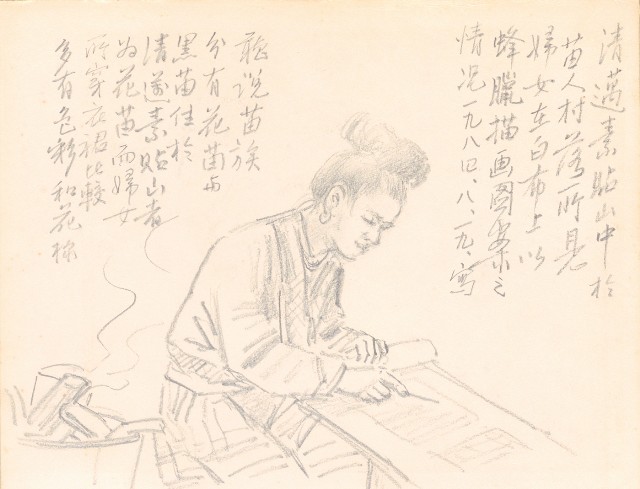 清邁素貼山中於
苗人村落所見
婦女在白布上以
蜂臘描画圖案之
情况一九八四、八、一九、寫
聽说苗族
分有花苗与
黑苗佳於
清邁素貼山者
为花苗而婦女
所穿衣裙比較
多有色彩和花様